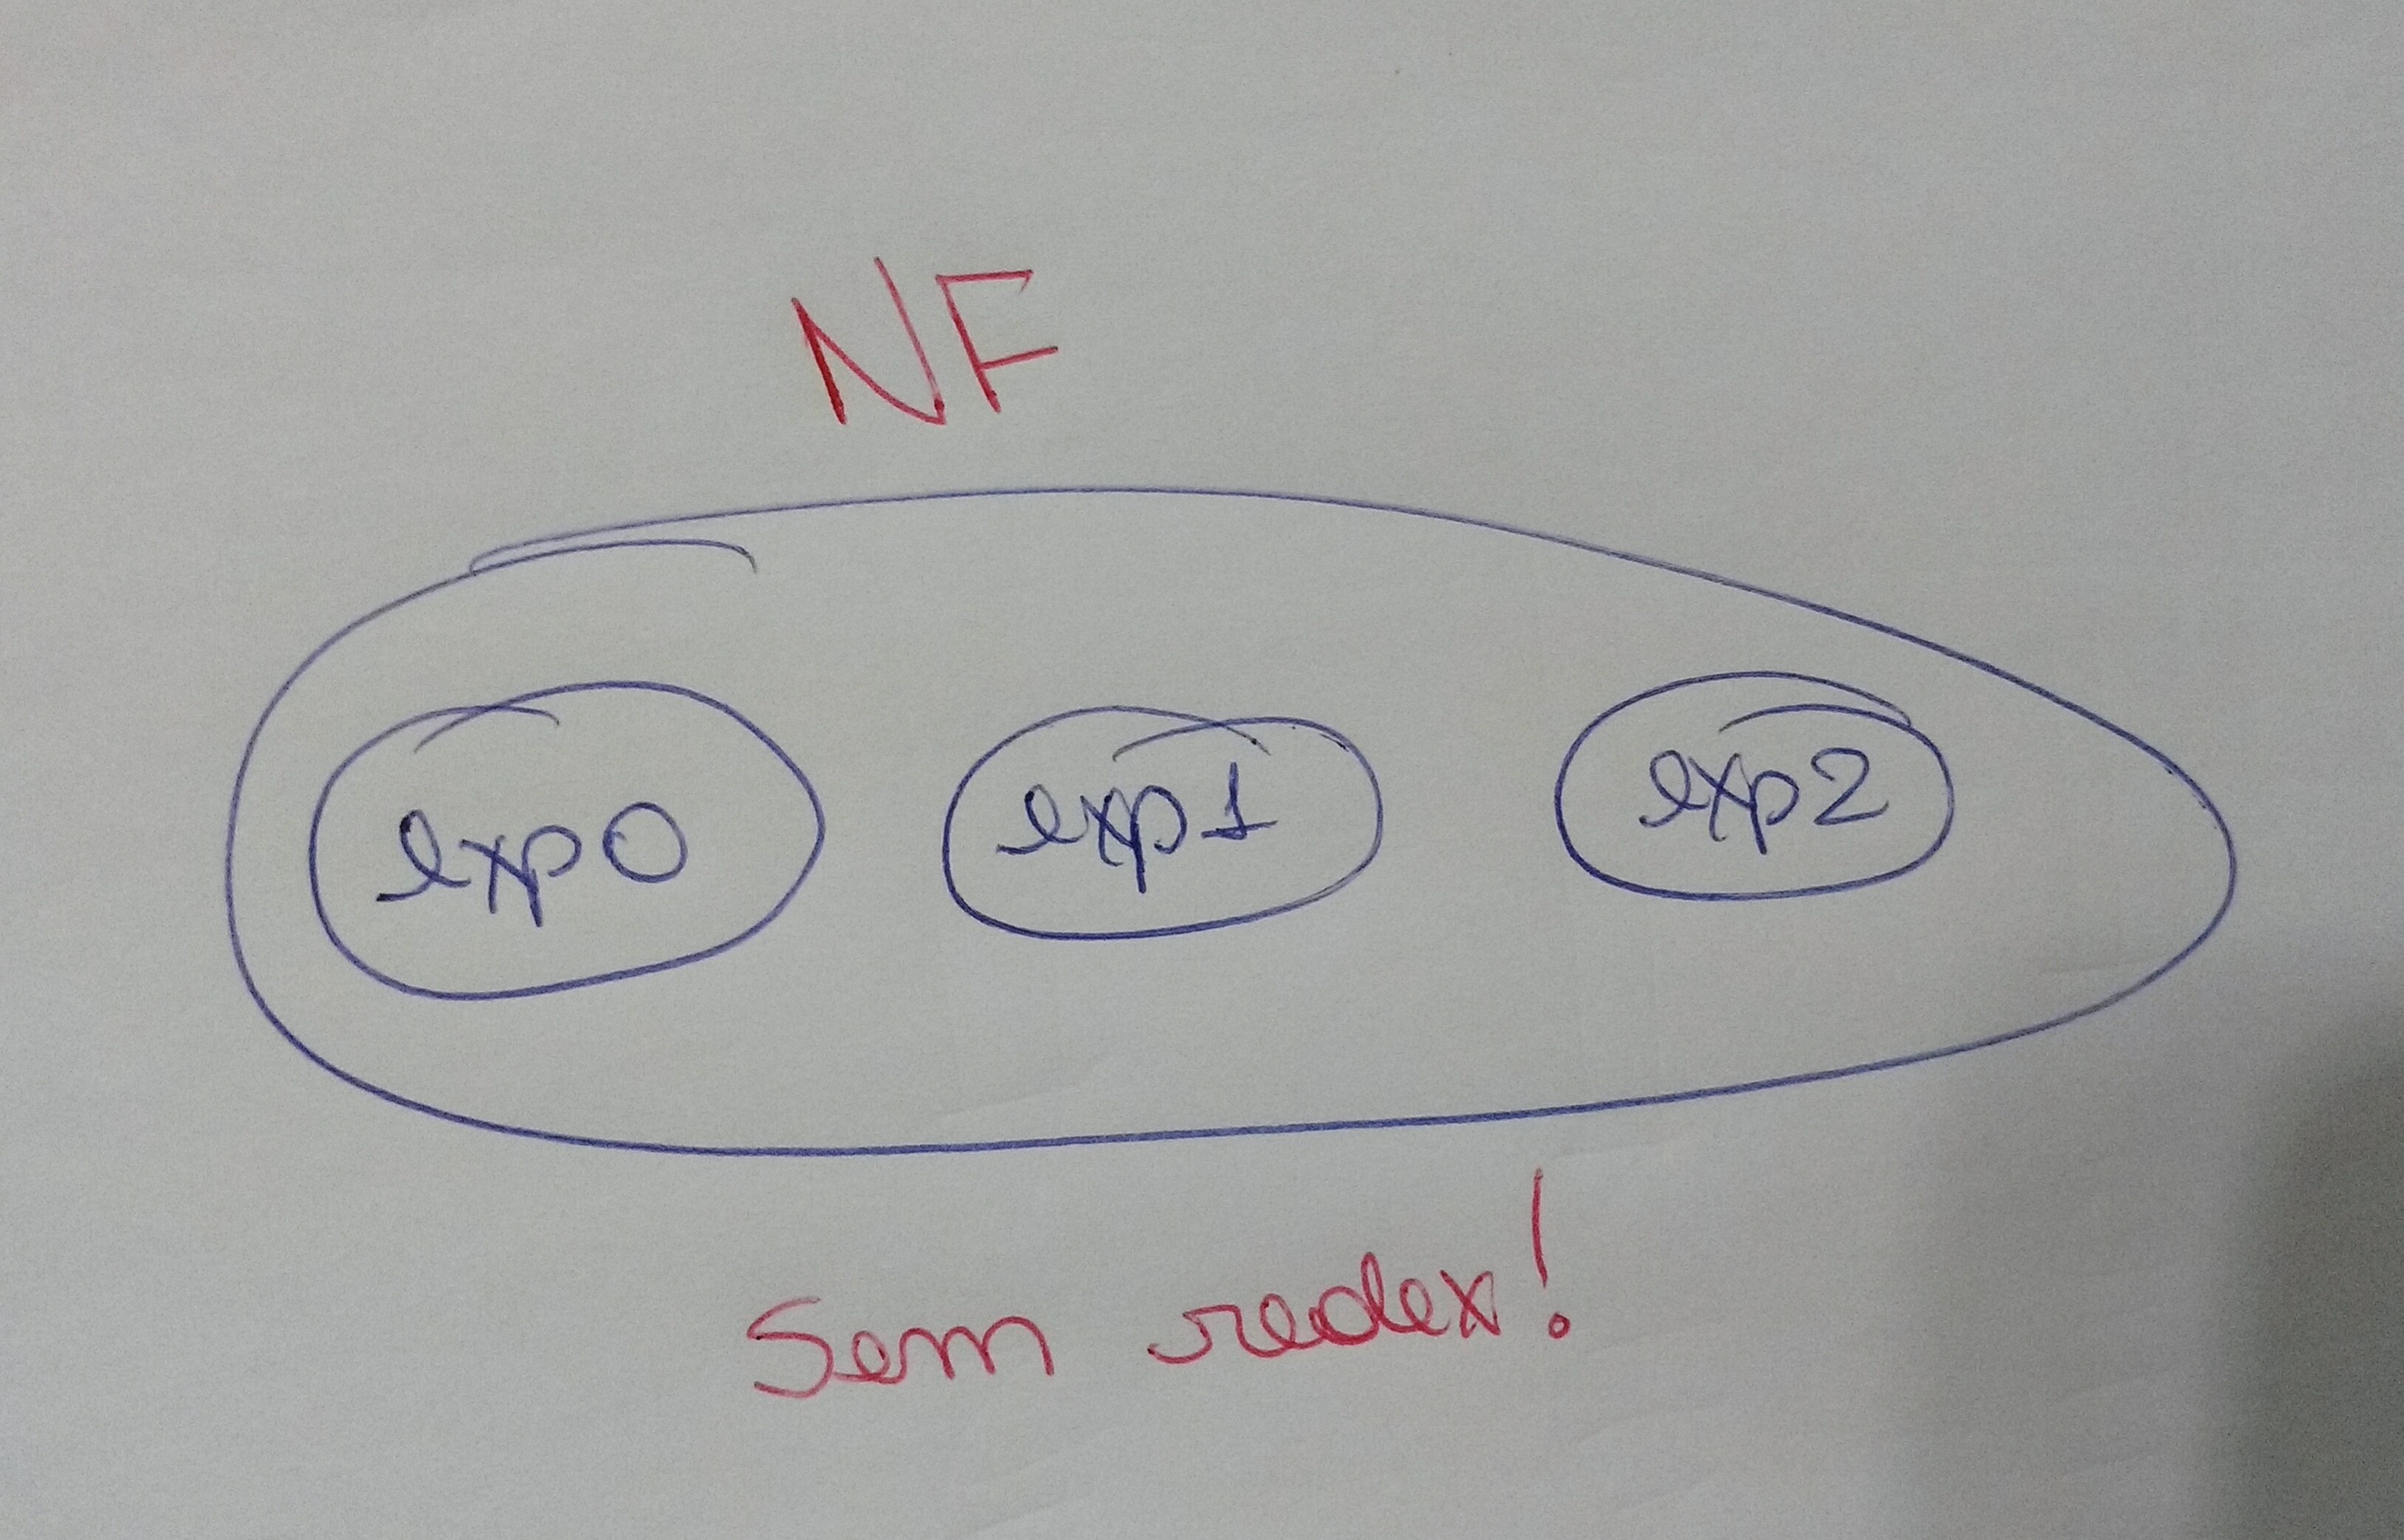 NF
exp0 exp1 exp2
Sem redex!